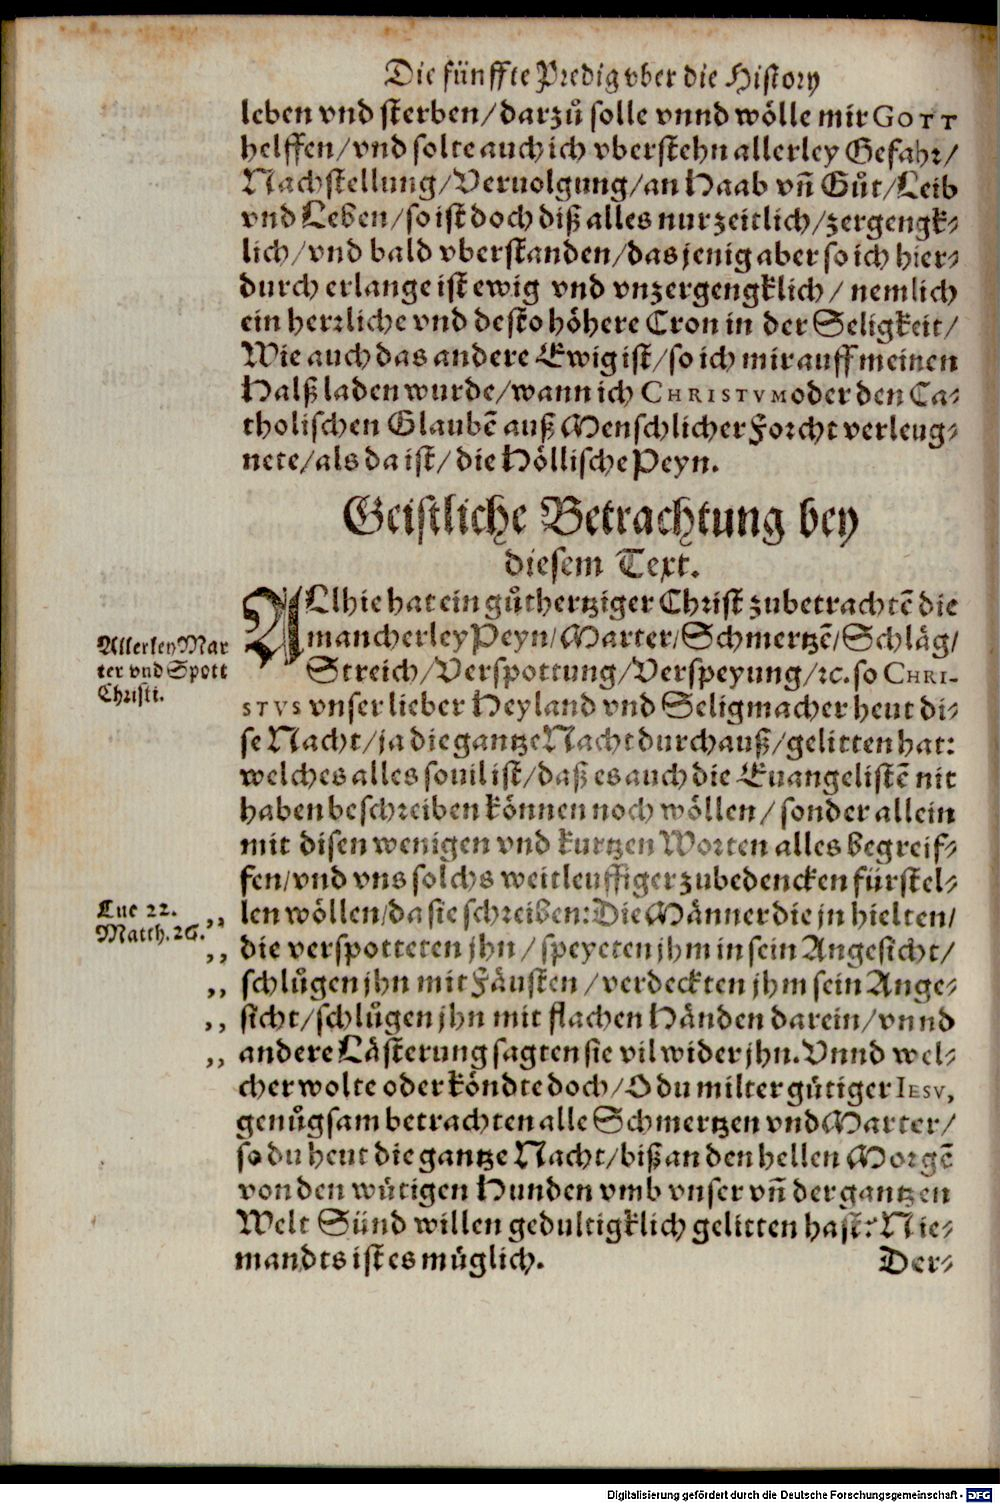 Die fünffte Predig vber die History
leben vnd sterben/darzů solle vnnd wölle mir GOTT
helffen/vnd solte auch ich vberstehn allerley Gefahr/
Nachstellung/Veruolgung/an Haab vñ Gůt/Leib
vnd Leben/so ist doch diß alles nur zeitlich/zergengk-
lich/vnd bald vberstanden/das jenig aber so ich hier-
durch erlange ist ewig vnd vnzergengklich/nemlich
ein herrliche vnd desto höhere Cron in der Seligkeit/
Wie auch das andere Ewig ist/so ich mir auff meinen
Halß laden wurde/wann ich CHRISTVM oder den Ca-
tholischen Glaubē auß Menschlicher Forcht verleug-
nete/als da ist/die Höllische Peyn.
Geistliche Betrachtung bey
diesem Text.
ALlhie hat ein gůthertziger Christ zubetrachtē die
mancherley Peyn/Marter/Schmertzē/Schläg/
Allerley Mar
ter vnd Spott
Christi.
Streich/Verspottung/Verspeyung/ꝛc. so CHRI-
STVS vnser lieber Heyland vnd Seligmacher heut di-
se Nacht/ja die gantze Nacht durchauß/gelitten hat:
welches alles souil ist/daß es auch die Euangelistē nit
haben beschreiben können noch wöllen/sonder allein
mit disen wenigen vnd kurtzen Worten alles begreif-
fen/vnd vns solchs weitleuffiger zubedencken fürstel-
Luc 22.
Matth. 26.
,, len wöllen/da sie schreiben: Die Männer die jn hielten/
,, die verspotteten jhn/speyeten jhm in sein Angesicht/
,, schlůgen jhn mit Fäusten/verdeckten jhm sein Ange-
,, sicht/schlůgen jhn mit flachen Händen darein/vnnd
,, andere Lästerung sagten sie vil wider jhn. Vnnd wel-
cher wolte oder köndte doch/O du milter gütiger IESV,
genůgsam betrachten alle Schmertzen vnd Marter/
so du heut die gantze Nacht/biß an den hellen Morgē
von den wütigen Hunden vmb vnser vñ der gantzen
Welt Sünd willen gedultigklich gelitten hast: Nie-
mandts ist es müglich.
Der-
Digitalisierung gefördert durch die Deutsche Forschungsgemeinschaft - DFG